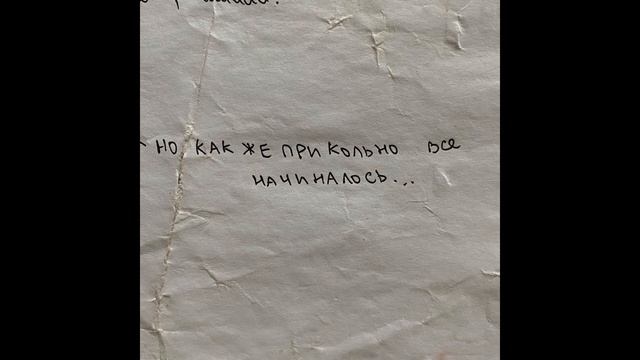 - НО КАК ЖЕ ПРИКОЛЬНО ВСЕ
НАЧИНАЛОСЬ...